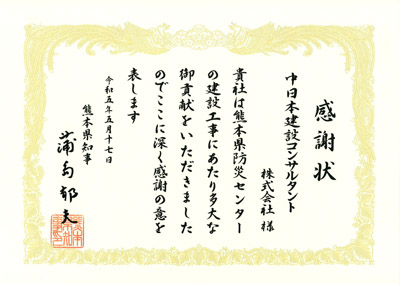 感謝状
中日本建設コンサルタント
株式会社 様
貴社は熊本県防災センター
の建設工事にあたり多大な
御貢献をいただきました
のでここに深く感謝の意を
表します
令和五年五月十七日
熊本県知事
蒲島郁夫